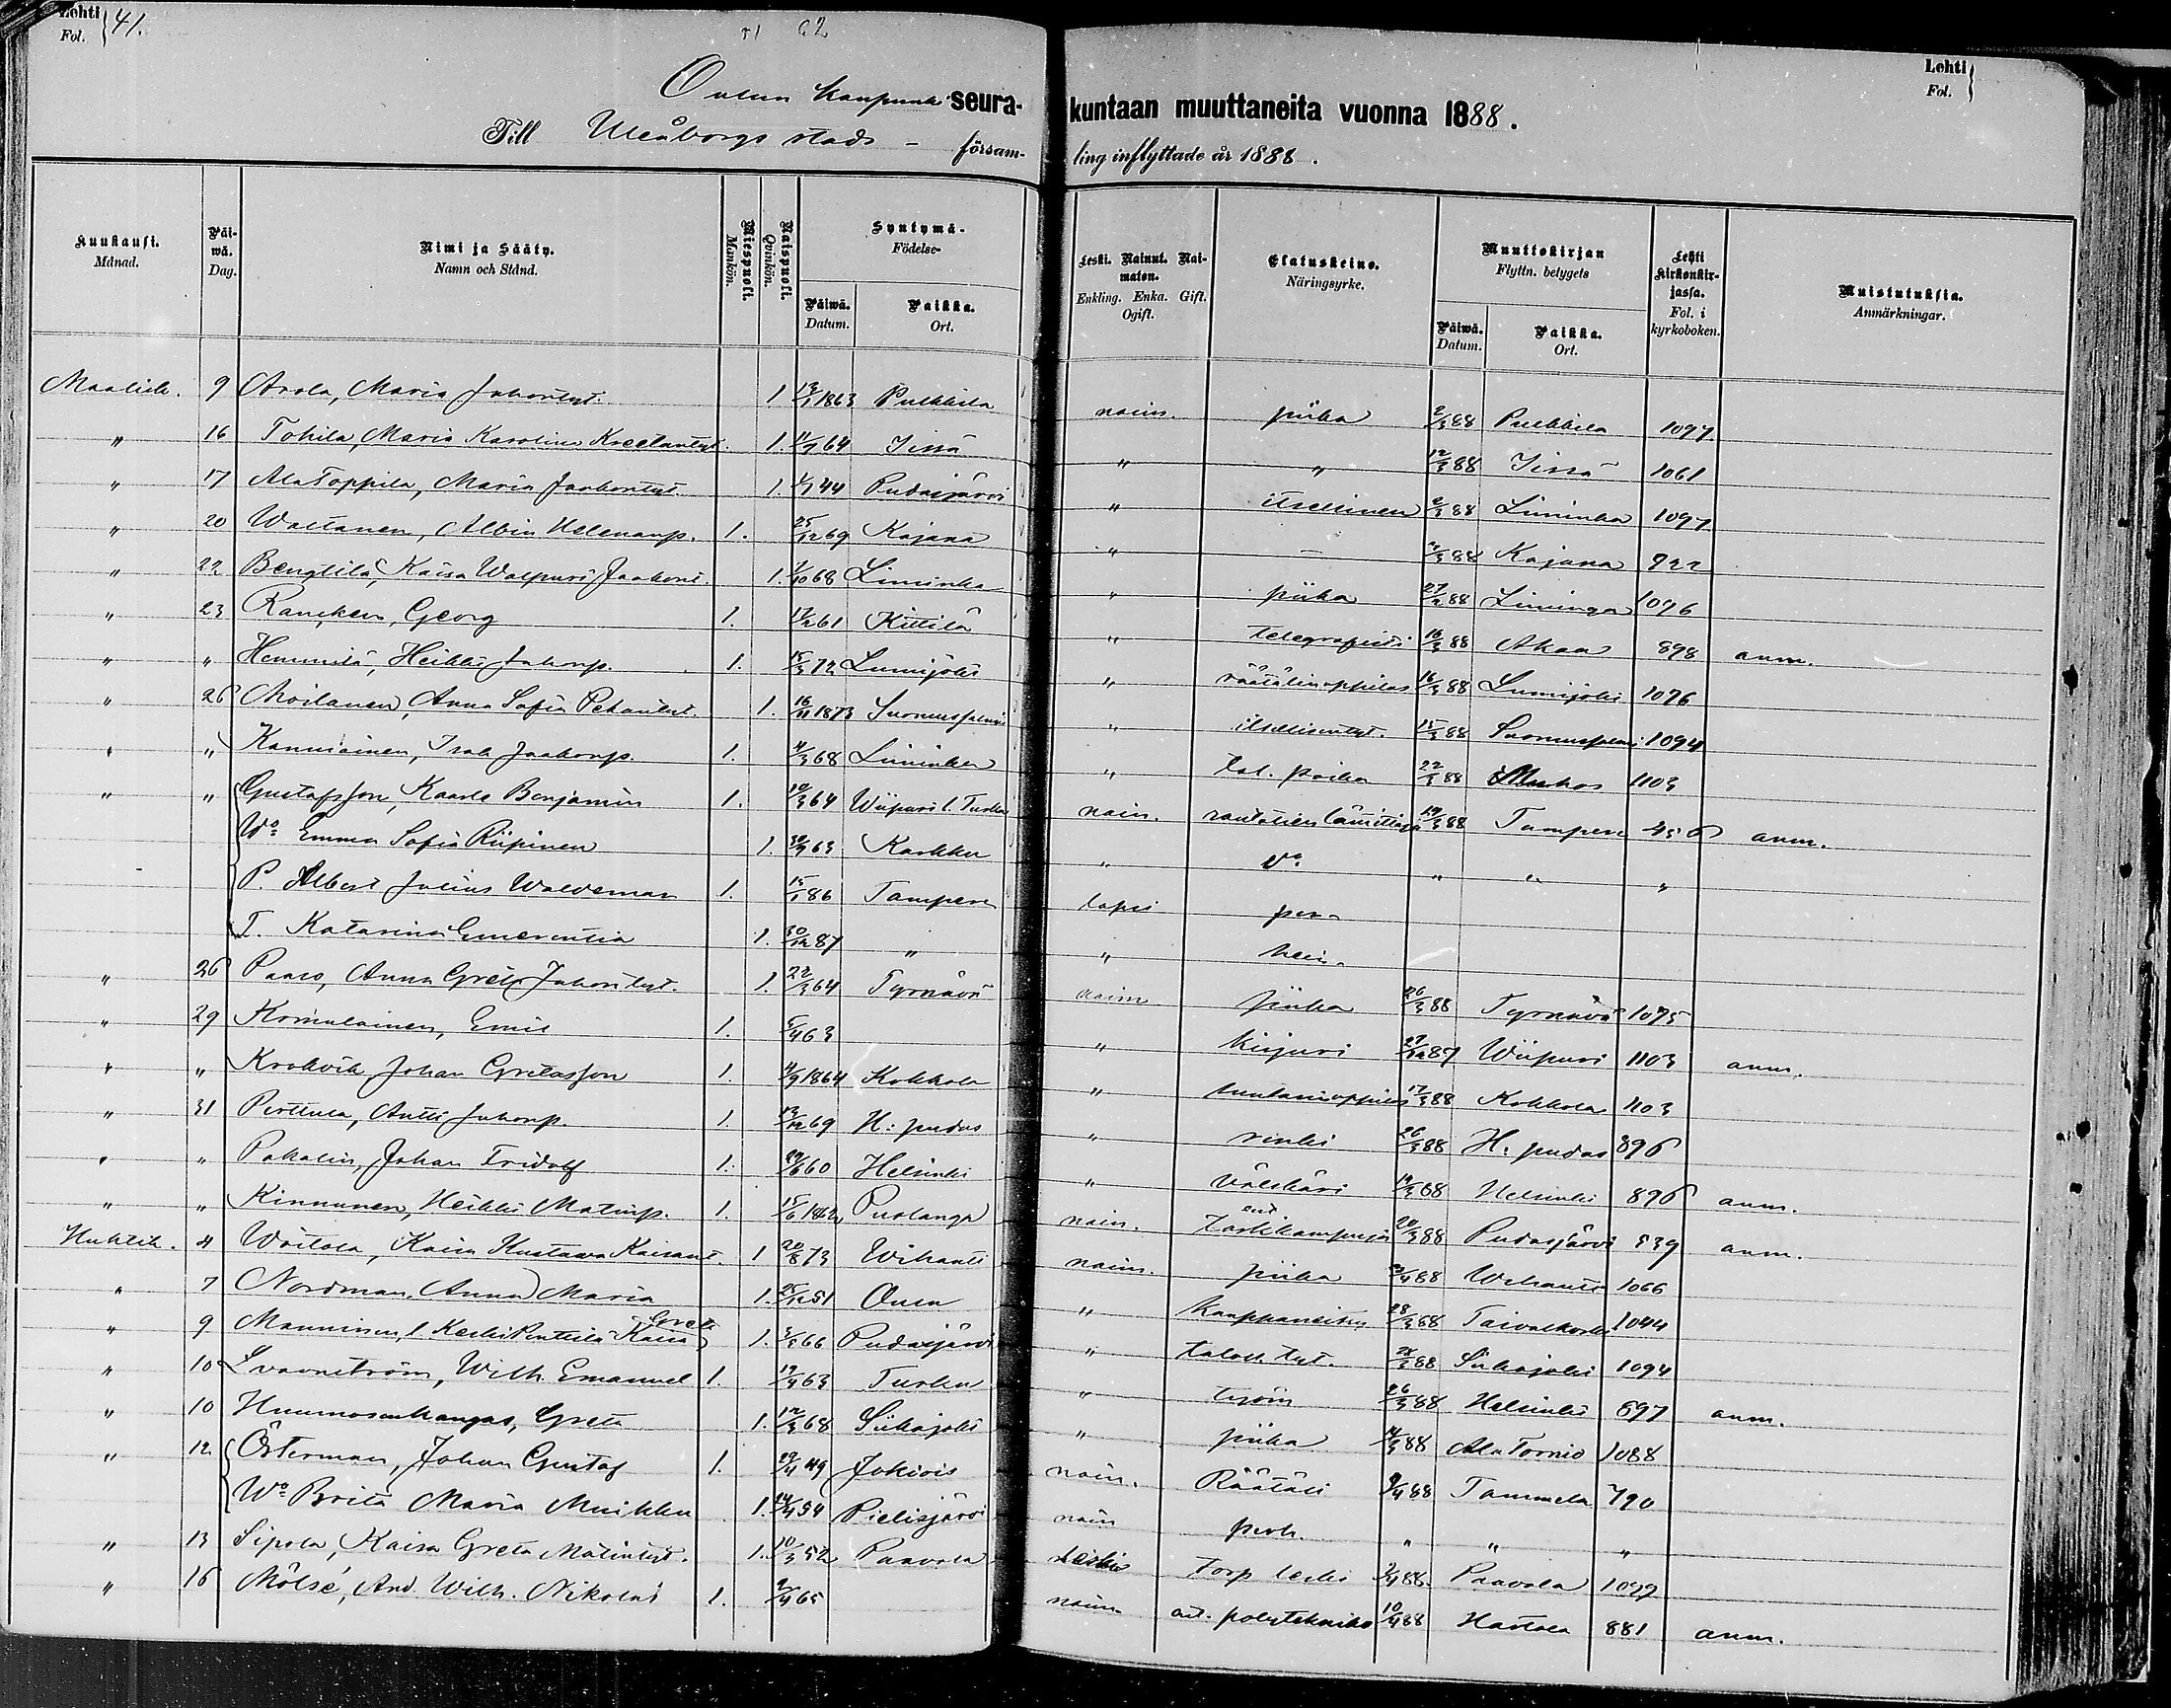 Lehti Fol. 41.
62
Oulun kaupunki seurakuntaan muuttaneita vuonna 1888.
Till Uleåborgs stads församling inflyttade år 1888.
Lehti Fol.
Kuukausi. Månad. Päiwä. Dag. Nimi ja Sääty. Namn och Stånd. Miespuoli. Mankön. Waispuoli. Qvinkön. Syntymä- Födelse- Päiwä. Datum. Paikka. Ort. Leski. Nainut. Naimaton. Enkling. Enka. Gift. Ogift. Elatuskeino. Näringsyrke. Muuttokirjan Flyttn. betygets Päiwä. Datum. Paikka. Ort. Lehti kirkonkirjassa. Fol. i kyrkoboken. Muistutuksia. Anmärkningar.
Maalisk. 9 Arola, Maria Juhontyt. 1 13/1 1863 Pulkkila naim. piika 2/3 88 Pulkkila 1097
" 16 Tohila, Maria Karolina Kreetantyt. 1. 11/9 64 Jissä " " 12/3 88 Jissä 1061
" 17 AlaToppila, Maria Jaakontyt. 1. 44 Pudasjärvi " itsellinen 2/3 88 Liminka 1097
" 20 Waltanen, Albin Helenanp. 1. 25/12 69 Kajana " — 88 Kajana 922
" 22 Bengtilä, Kaisa Walpuri Jaakont. 1. 1/10 68 Liminka " piika 27/2 88 Liminga 1096
" 23 Rancken, Georg 1. 17/2 61 Kittilä " telegrafisti 16/3 88 Akaa 898 anm.
" " Hemmilä, Heikki Juhonp. 1. 15/3 72 Lumijoki " räätälinoppilas 16/3 88 Lumijoki 1076
" 26 Moilanen, Anna Sofia Petontyt. 1. 16/11 1873 Suomussalmi " itsellisentyt. 15/3 88 Suomussalmi 1094
" " Kanniainen, Isak Jaakonp. 1. 4/3 68 Liminka " tal. poika 22/3 88 Muhos 1103
" " Gustafsson, Kaarle Benjamin 1. 10/3 64 Wiipuri l. Turku nain. rautatien lämittäjä 19/3 88 Tampere 456 anm.
Wo Emma Sofia Riipinen 1. 30/9 63 Karkku " vo " " "
P. Albert Julius Waldemar 1. 15/1 86 Tampere lapsi
T. Katarina Emerentia 1. 30/12 87 " "
" 26 Paaso, Anna Greta Juhontyt. 1. 22/3 64 Tyrnävä naim piika 26/3 88 Tyrnävä 1075
" 29 Komulainen, Emil 1. 5/4 63 " kirjuri 27/12 87 Wiipuri 1103 anm.
" " Krokvik, Johan Gretasson 1. 4/9 1864 Kokkola " 17/3 88 Kokkola 1103
" 31 Perttula, Antti Juhonp. 1. 13/12 69 H: pudas " renki 26/3 88 H. pudas 896
" " Pakalin, Johan Fridolf 1. 29/6 60 Helsinki " välskäri 19/3 88 Helsinki 896 anm.
" " Kinnunen, Heikki Matinp. 1. 15/6 1862 Puolanga nain. ent. tarkkampuja 20/3 88 Pudasjärvi 539 anm.
Huhtik. 4 Woitola, Kaisa Kustawa Kaisant. 1 20/8 73 Wihanti naim. piika 3/4 88 Wihanti 1066
" 7 Nordman, Anna Maria 1. 25/12 51 Oulu " kauppaneitsy 28/3 88 Taivalkoski 1044
" 9 Manninen, l. KeskiPenttilä Kaisa Greta 1. 3/5 66 Pudasjärvi " talon. tyt. 28/3 88 Siikajoki 1094
" 10 Lvovström, Wilh. Emanuel 1. 19/4 63 Turku " työm 26/3 88 Helsinki 697 anm.
" 10 Huumosenkangas, Greta 1. 12/3 68 Siikajoki " piika 14/3 88 Ala Tornio 1088
" 12 Österman, Johan Gustaf 1. 29/4 49 Jokiois nain. Räätäli 9/4 88 Tammela 790
Wo Brita Maria Muikku 1. 14/4 54 Pielisjärvi nain perh. " " "
" 13 Sipola, Kaisa Greta Matintyt. 1. 10/3 52 Paavola leski torp. leski 3/4 88 Paavola 1092
" 16 Mölsé, And. Wilh. Nikolai 1. 2/4 65 naim. polyteknik. 10/4 88 Hattula 881 anm.